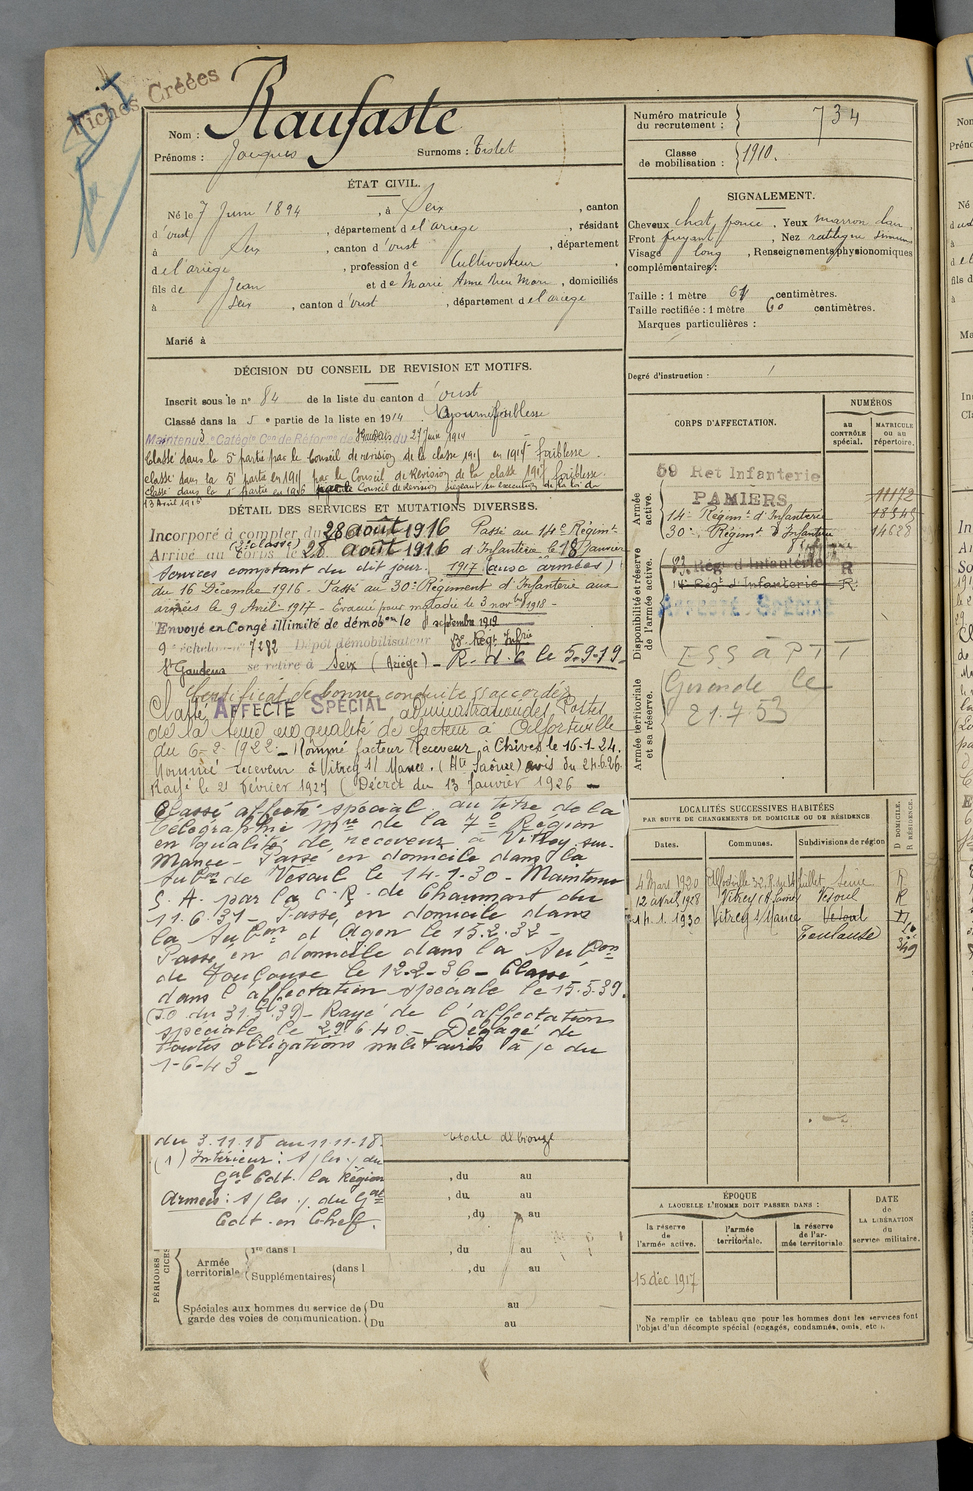 Fiches Créées
Nom : Raufaste
Prénoms : Jacques Surnoms : Tistet
ÉTAT CIVIL.
Né le 7 Juin 1894, à Seix, canton
d'oust, département de l'ariège, résidant
à Seix, canton d'oust, département
de l'ariège, profession de Cultivateur
fils de Jean et de Marie Anne, domiciliés
à Seix, canton d'oust, département de l'ariege
Marié à
DÉCISION DU CONSEIL DE REVISION ET MOTIFS.
Inscrit sous le n° 84 de la liste du canton d'oust
Classé dans la 5e partie de la liste en 1914 Ajourné faiblesse
Maintenu 3e Catégie Con de Réforme de du 27 Juin 1914
Classé dans la 5e partie par le Conseil de revision de la classe 1915 en 1915 faiblesse.
classé dans la 5e partie en 1915 par le Conseil de Revision de la classe 1917 faiblesse.
classé dans la 1e partie en 1916 par le Conseil de Revision siégeant en exécution de la loi du
13 Avril 1916
DÉTAIL DES SERVICES ET MUTATIONS DIVERSES.
Incorporé à compter du 28 août 1916 Passé au 14e Régimt
Arrivé au corps le 28 août 1916 (2e classe) d'Infanterie le 18 Janvier
Services comptant du dit jour. 1917 (aux armées)
du 16 Décembre 1916 - Passé au 30e Régiment d'Infanterie aux
armées le 9 Avril 1917 - Evacué pour maladie le 3 novbre 1918 -
Envoyé en Congé illimité de démobon le 8 septembre 1919
9e échelon n° 7282 Dépôt démobilisateur Regt Infrie
St Gaudens se retire à Seix (Ariège) - R.d.C le 5-9-19.
Certificat de bonne conduite accordé
Classé AFFECTÉ SPÉCIAL administration des Postes
de la Seine en qualité de facteur à Alfortville
du 6-2-1922 - Nommé facteur Receveur à Chives le 16-1-24.
Nommé receveur à Vitrey s/ Mance. (Hte Saône) avis du 24-6-26.
Rayé le 21 Février 1927 (Décret du 13 Janvier 1926 -
Classé affecté spécial au titre de la
télégraphie Mre de la 7e Région
en qualité de receveur à Vitrey-sur-
Mance - Passé en domicile dans la
Subon de Vesoul le 14-1-30 - Maintenu
S.A. par la C.R. de Chaumont du
11.6.31 - Passé en domicile dans
la Subon d'Agen le 15.2.32 -
Passe en domicile dans la Subon
de Toulouse le 12-2-36 - Classé
dans l'affectation spéciale le 15.5.39.
(J.O du 31.5.39) - Rayé de l'affectation
spéciale le 29.6.40 - Dégagé de
toutes obligations militaires à /c du
1-6-43 -
du 3.11.18 au 11-11-18. Etoile de bronze
(1) Intérieur : S/les o/ du
Gal Cdt. la Région
Armées : S/les o/ du Gal
Cdt. en Chef.
, du au
, du au
, du au
1re dans l , du au
Armée territoriale Supplémentaires dans l , du au
Spéciales aux hommes du service de garde des voies de communication. Du au
Du au
Numéro matricule du recrutement : 734
Classe de mobilisation : 1910.
SIGNALEMENT.
Cheveux chat. foncé, Yeux marron clair
Front fuyant, Nez rectiligne
Visage long, Renseignements physionomiques
complémentaires :
Taille : 1 mètre 61 centimètres.
Taille rectifiée : 1 mètre 60 centimètres.
Marques particulières :
Degré d'instruction :
CORPS D'AFFECTATION.
NUMÉROS
au CONTRÔLE spécial.
MATRICULE ou au répertoire.
Armée active.
59 Ret Infanterie
PAMIERS 11172
14e Régimt d'Infanterie 18345
30e Régimt d'Infanterie 14688
Disponibilité et réserve de l'armée active.
Regt d'Infanterie R
14e Regt d'Infanterie R.
AFFECTÉ SPÉCIAL
Armée territoriale et sa réserve.
ESS à PTT
Gironde le
21.7.53
LOCALITÉS SUCCESSIVES HABITÉES
PAR SUITE DE CHANGEMENTS DE DOMICILE OU DE RÉSIDENCE
Dates. Communes. Subdivisions de région
D DOMICILE. R RÉSIDENCE.
4 Mars 1920 Alfortville 32 R. du 14 Juillet Seine R
12 avril 1928 Vitrey (H. Saône) Vesoul R
14.1.1930 Vitrey s/ Mance Vesoul D
Toulouse
ÉPOQUE
A LAQUELLE L'HOMME DOIT PASSER DANS :
la réserve de l'armée active.
l'armée territoriale.
la réserve de l'armée territoriale
DATE de LA LIBÉRATION du service militaire.
15 déc 1917
Ne remplir ce tableau que pour les hommes dont les services font
l'objet d'un décompte spécial (engagés, condamnés, omis, etc.).